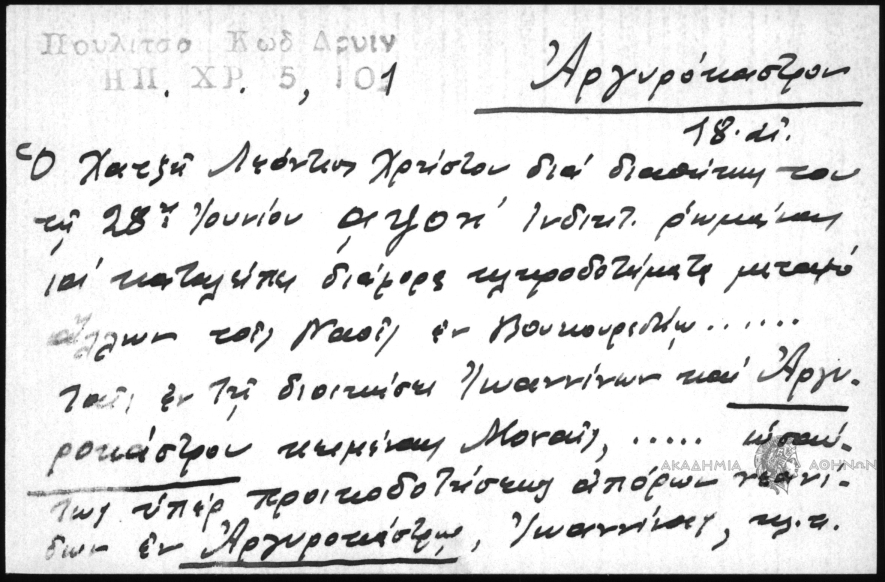 Πουλιτσα Κωδ Δρυιν
ΗΠ. ΧΡ. 5, 101
Ἀργυρόκαστρον
18. αι.
Ὁ Χατζῆ Λεόντιος Χρήστου διά διαθήκης του
τῇ 28ῃ Ἰουνίου αψοη' Ἰνδικτ.
ιαί καταλείπει διάφορα κληροδοτήματα μεταξύ
ἄλλων τοῖς Ναοῖς ἐν Βουκουρεστίῳ......
ταῖς ἐν τῇ διοικήσει Ἰωαννίνων καί Ἀργυ-
ροκάστρου κειμέναις Μοναῖς, ..... ὡσαύ-
τως ὑπέρ προικοδοτήσεως ἀπόρων νεανί-
δων ἐν Ἀργυροκάστρῳ, Ἰωαννίνοις, κλ.π.
ΑΚΑΔΗΜΙΑ ΑΘΗΝΩΝ